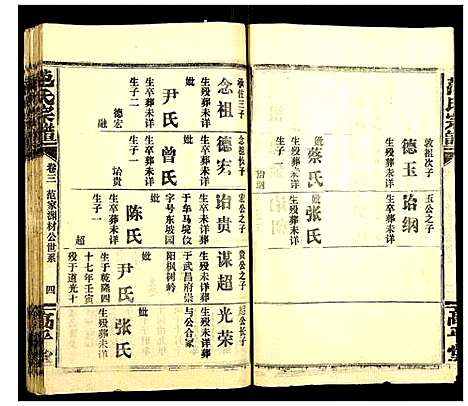 敦祖次子
德玉
生歿葬未详
妣
蔡氏
生卒葬未详
生子一
诒纲
玉公之子
诒纲
生歿葬未详
妣
张氏
生卒葬未详
高平堂
范氏宗谱
卷三
范家湖材公世系
四
高平堂
念祖
生歿葬未详
妣
尹氏
生卒葬未详
生子二
德宏
融
念祖长子
德宏
生歿葬未详
妣
曾氏
生卒葬未详
生子一
诒贵
宏公之子
诒贵
生歿葬未详
妣
陈氏
生卒葬未详
生子一
超
贵公之子
谋超
妣
尹氏
生于乾隆四
十七年壬寅
歿于道光十
超公长子
光荣
生歿未详葬
与公合冢
妣
张氏
生卒葬未详